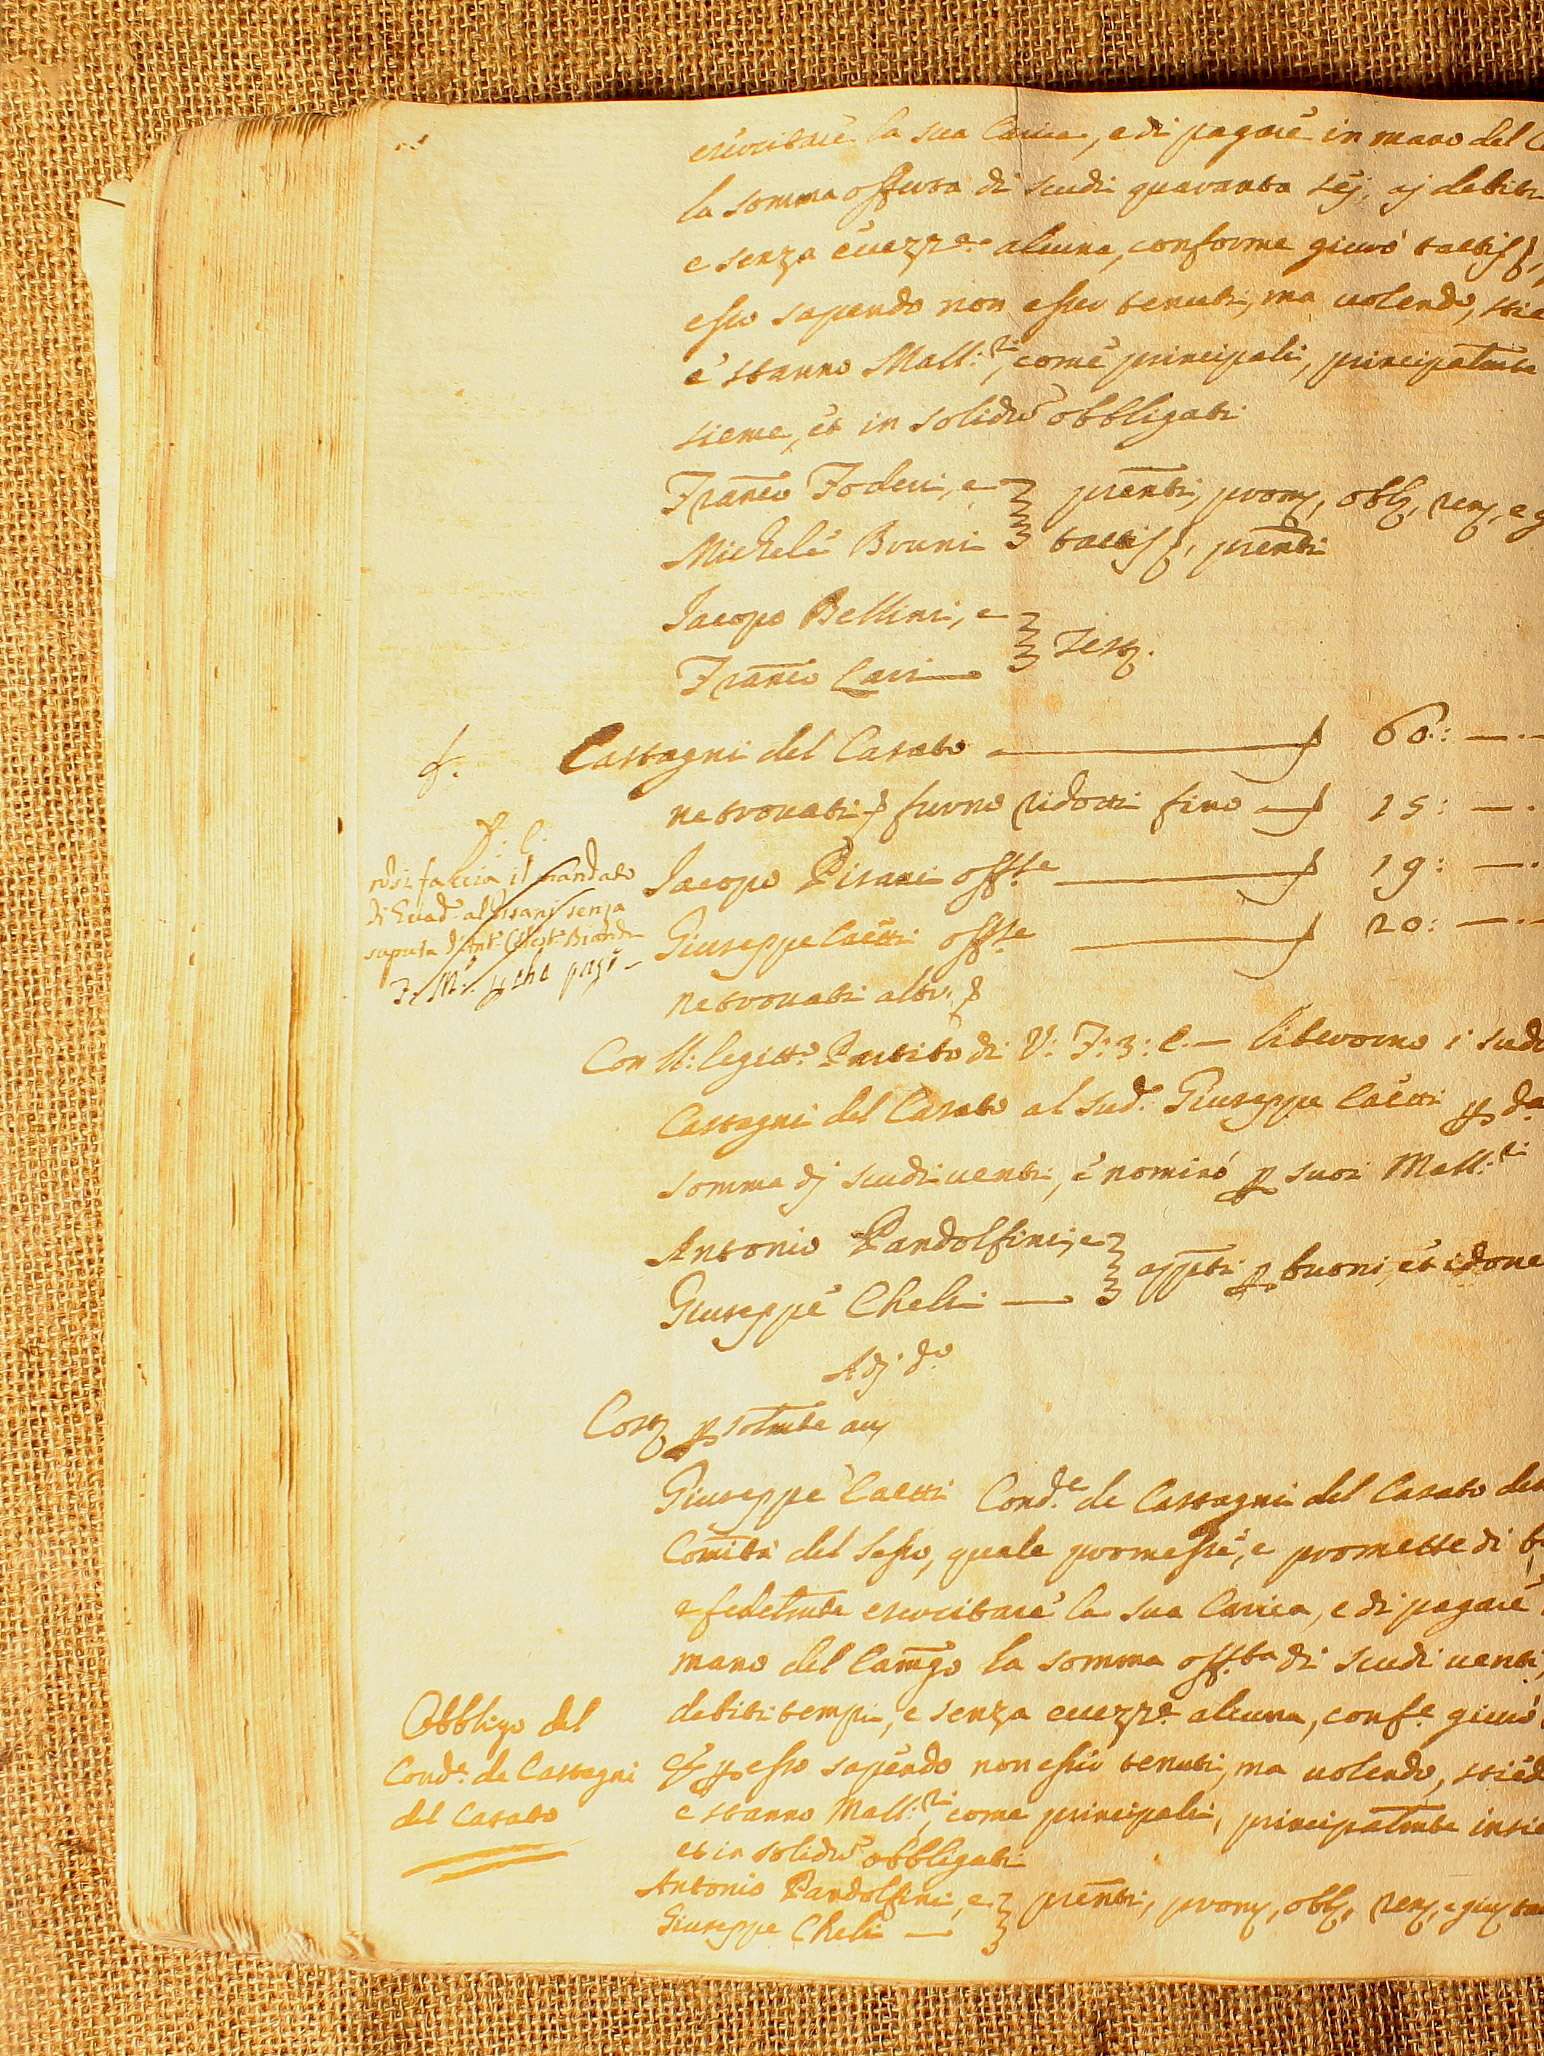 esercitare la sua Carica, e di pagare in mano del
la somma offerta di scudi quaranta sej, aj debiti
e senza ecezz.e alcuna, conforme giurò tactis
esso sapendo non esser tenuti, ma volendo,
e stanno Mall:ri, come principali, principalmte
sieme, et in solidu obbligati
Franco Foderi, e
prenti, prom, obb, ren, e
Michele Bruni
tactis, prenti
Jacopo Bellini, e
Franco Cari
Test.
Castagni del Casato 60: —
ne trovati furno ridotti fino 15: —
si faccia il mandato
di al Pisani senza
saputa
che paghi
Jacopo Pisani offse 19: —
Giuseppe Caetti offse 20: —
ne trovati altri
Con lor: legitt.o Partito di V: F: 3: C. — liberorno i
Castagni del Casato al sud.o Giuseppe Caetti p
somma dj scudi venti, e nominò p suoi Mall:ri
Antonio Pandolfini, e
appti p buoni, et
Giuseppe Cheli
Adj do
p soltmte
Giuseppe Caetti Cond.e de Castagni del Casato
Comità del Sesso, quale promesse, e promette di
e fedelmte esercitare la sua Carica, e di pagare
mano del Camgo la somma off.ta di scudi venti,
debiti tempi, e senza ecezz.e alcuna, conf.e giurò
Obbligo del
Cond.e de Castagni
del Casato
et p esso sapendo non esser tenuti, ma volendo,
e stanno Mall:ri, come principali, principalmte
et in solidu obbligati
Antonio Pandolfini, e
prenti, prom, obb, ren, e
Giuseppe Cheli